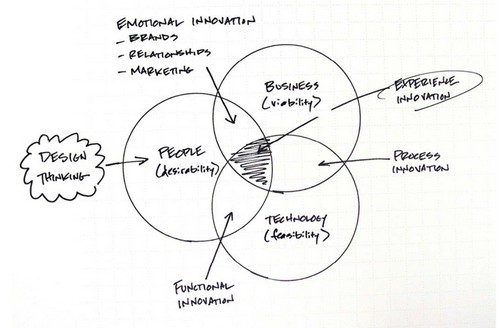 EMOTIONAL INNOVATION
- BRANDS
- RELATIONSHIPS
- MARKETING
BUSINESS
(viability)
EXPERIENCE
INNOVATION
DESIGN
THINKING
PEOPLE
(desirability)
PROCESS
INNOVATION
TECHNOLOGY
(feasibility)
FUNCTIONAL
INNOVATION